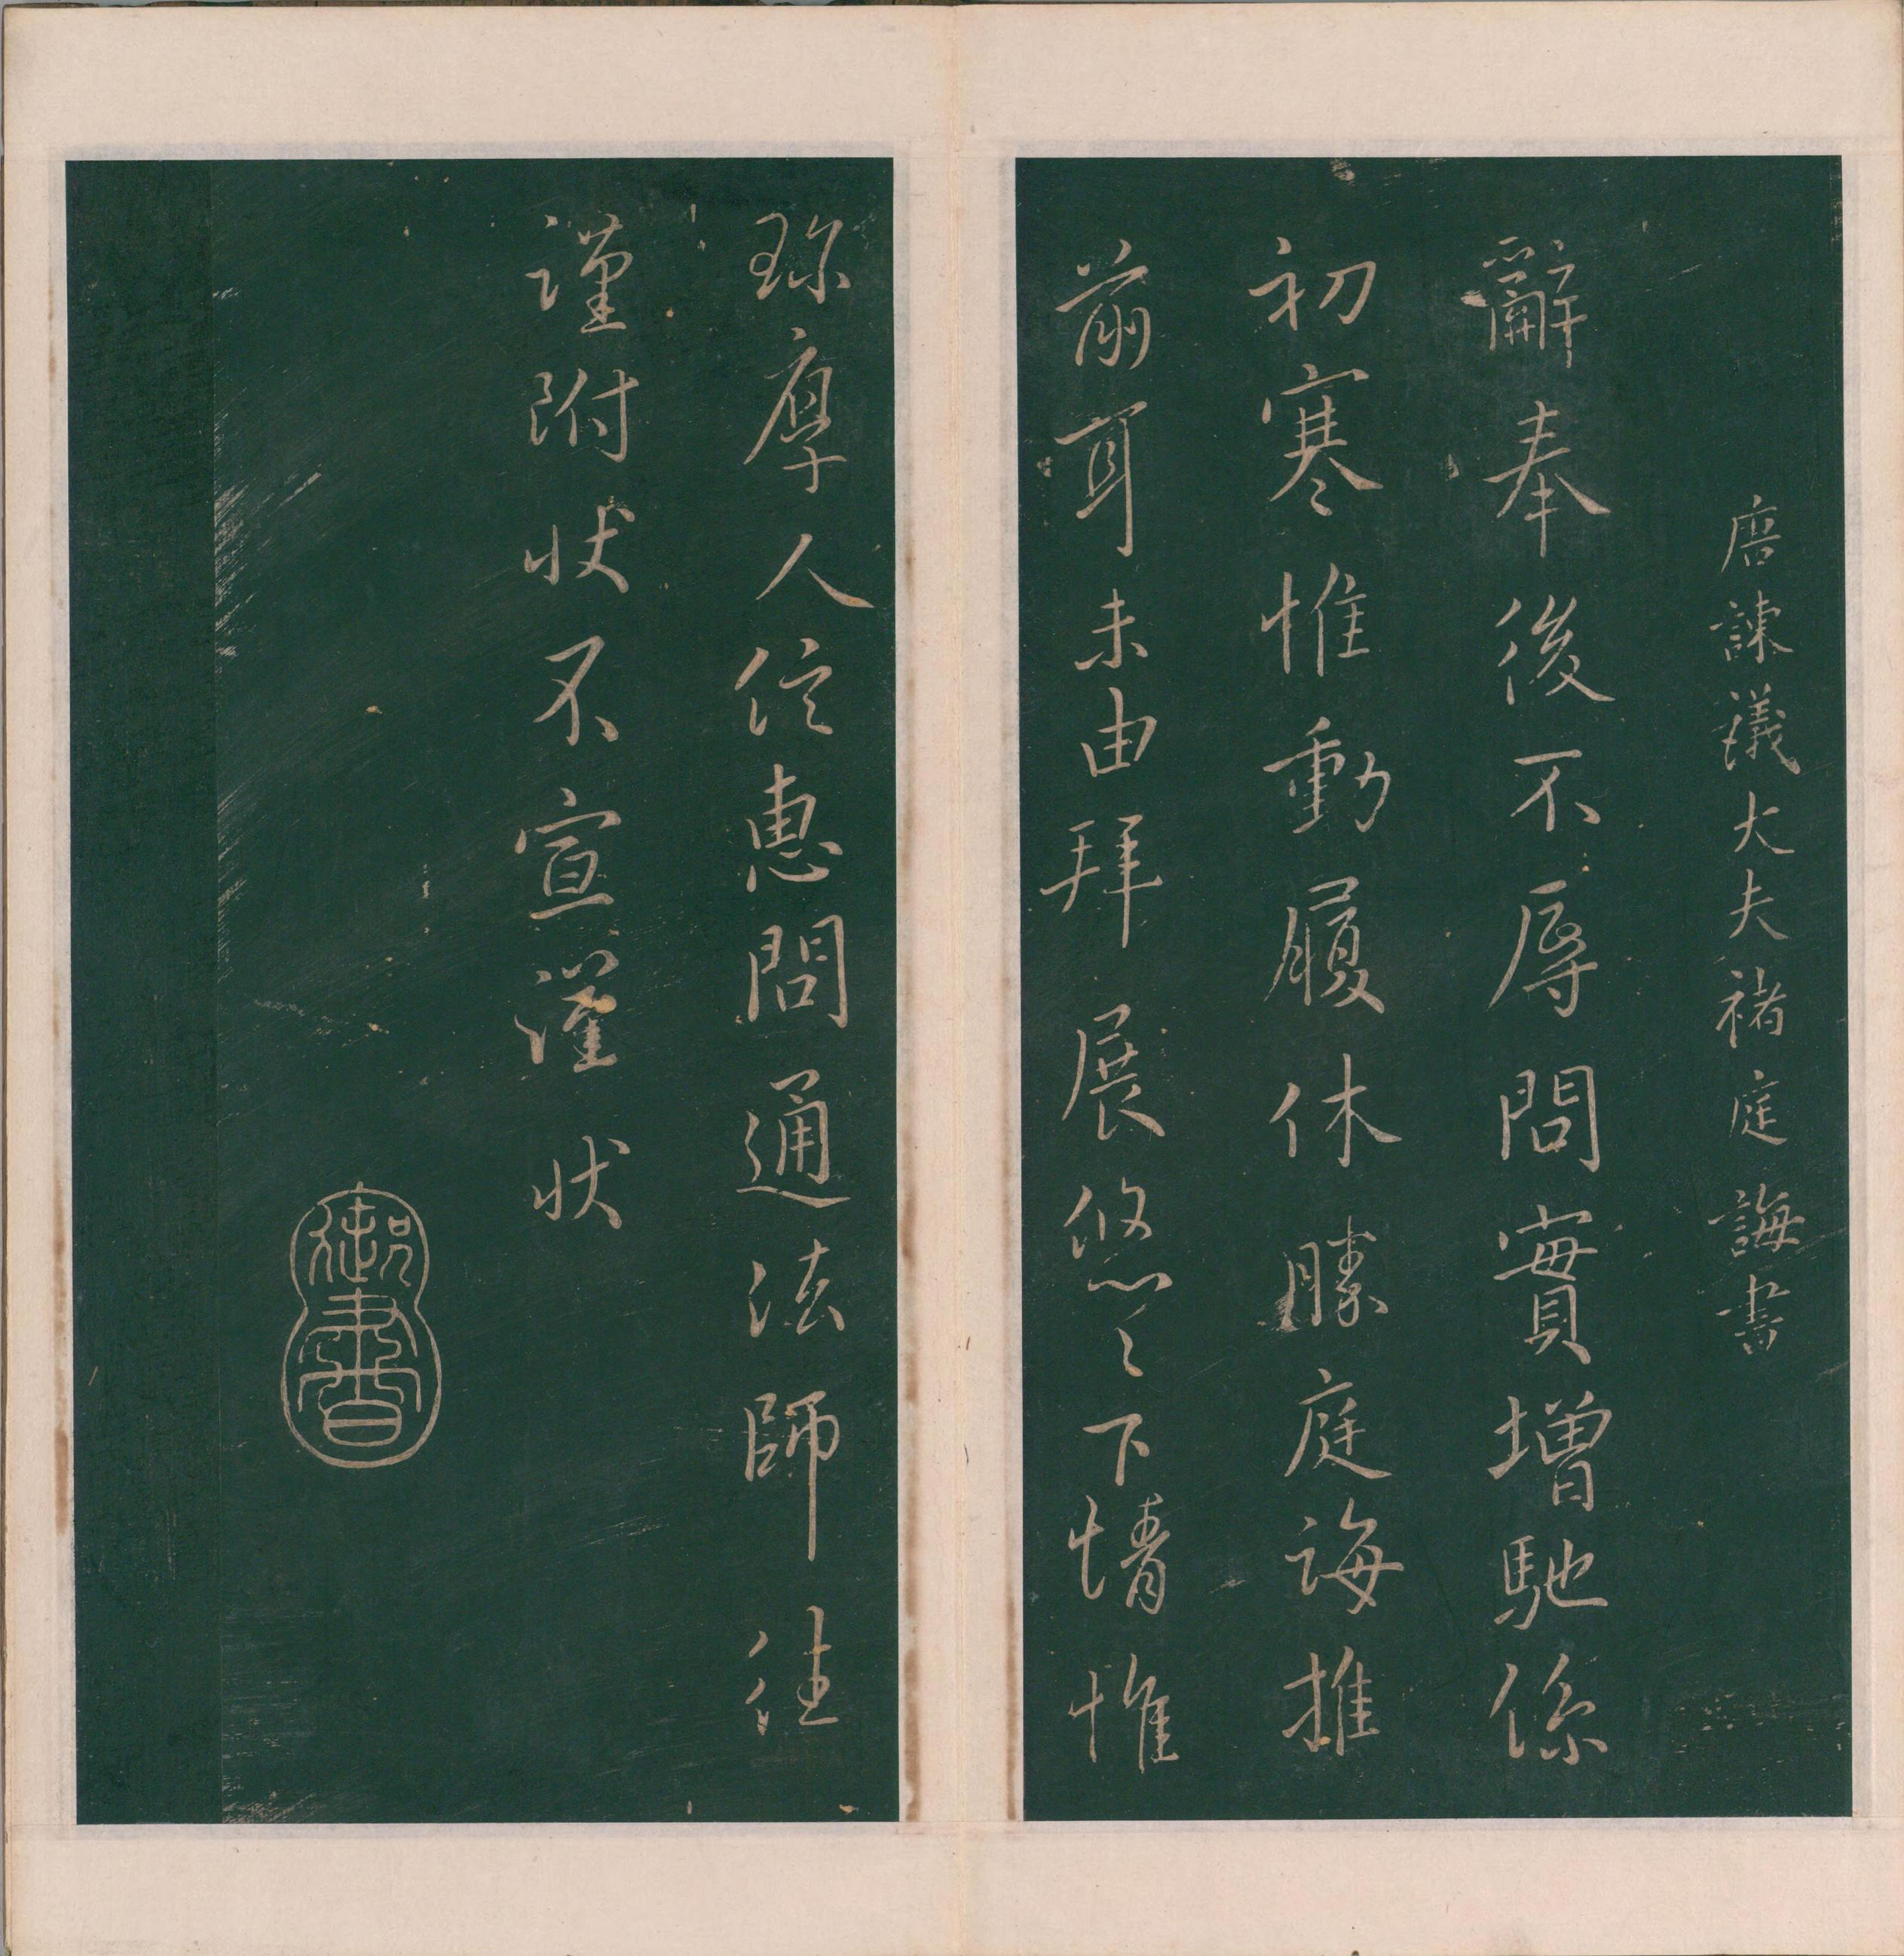 唐諫議大夫褚庭誨書
辭奉後不辱問實增馳係
初寒惟動履休勝庭誨推
前耳未由拜展悠〻下情惟
珎厚人信惠問通法師往
謹附狀不宣謹狀
御書